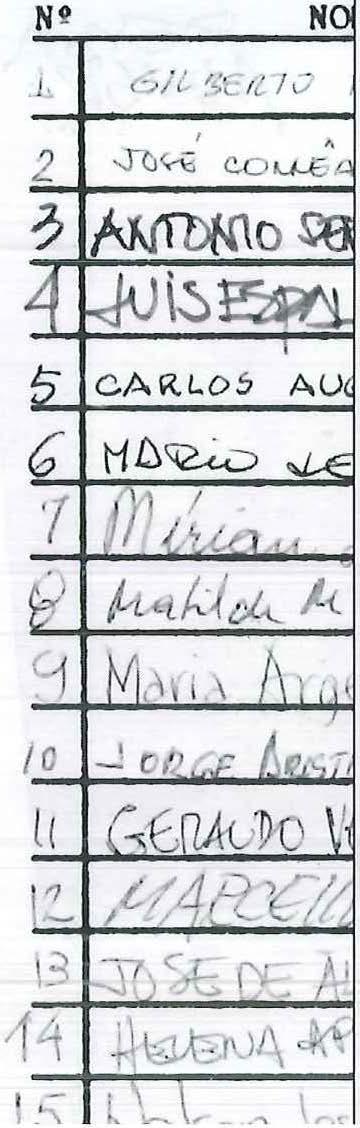 Nº NO
1 GILBERTO
2 JOSÉ CORRÊA
3 ANTONIO
4 LUIS
5 CARLOS AUG
6 MARIO LE
7 Mírian
8 Matilde M
9 Maria
10 JORGE ARISTI
11 GERALDO
12 MARCELO
13 JOSE DE AL
14 HELENA AP
15